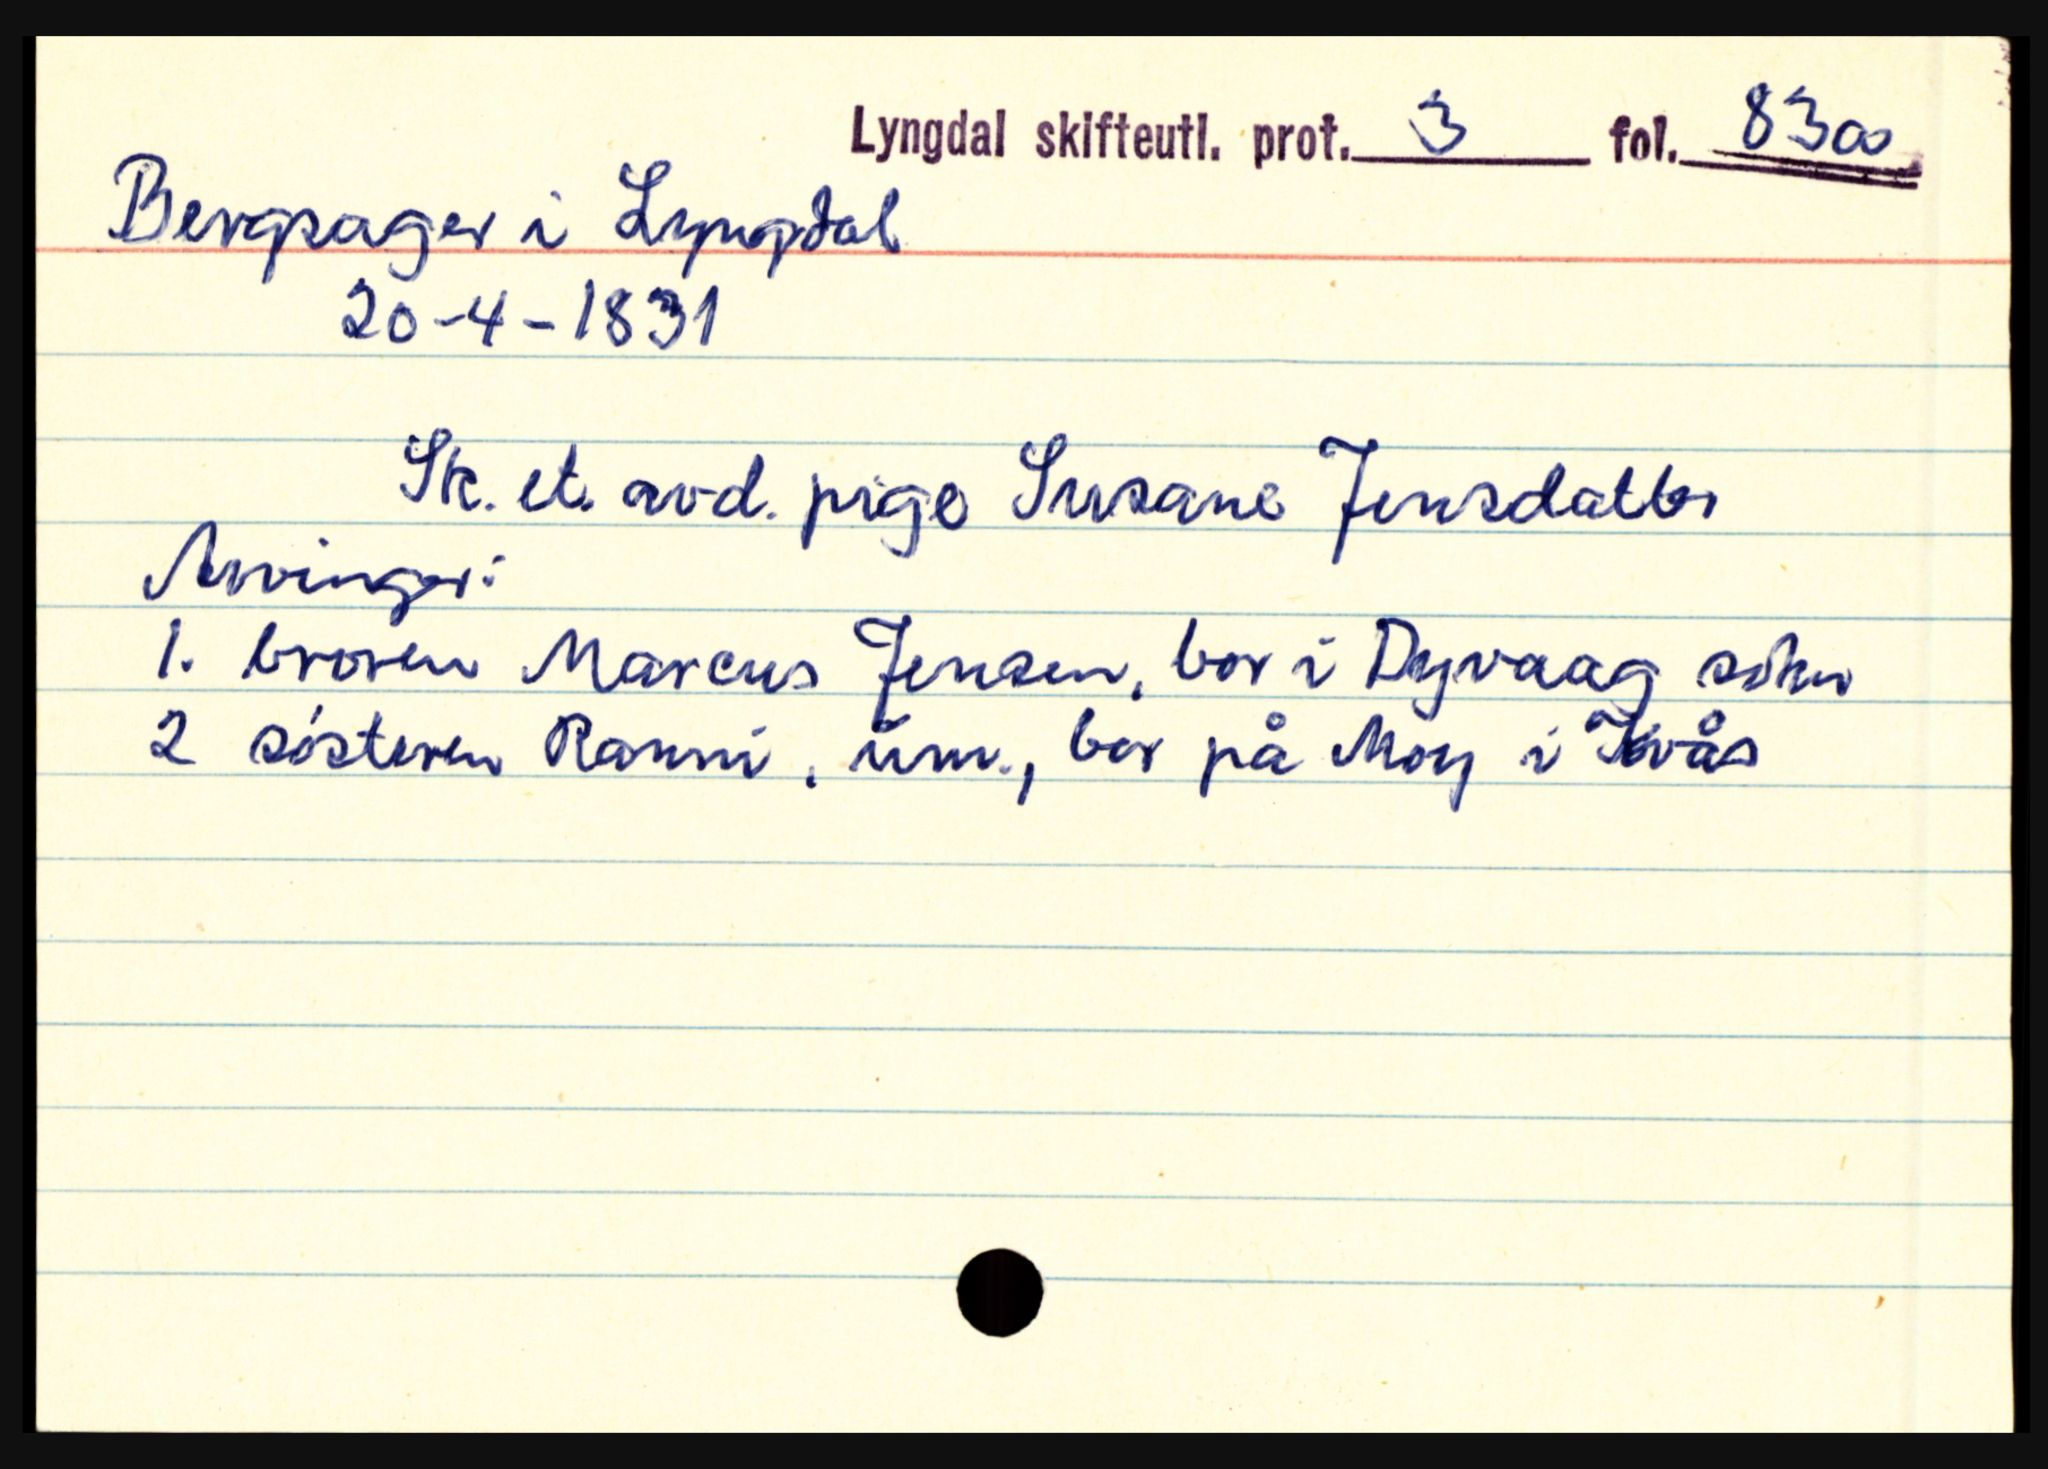 Lyngdal skifteutl. prot. 3 fol. 83
Bergsager i Lyngdal
20-4-1831
Sk. et. avd. pige Susane Jensdatter
Arvinger:
1. broren Marcus Jensen, bor i Dyvaag sókn
2 sósteren Ranni, úm., bor på Moy i Kvås